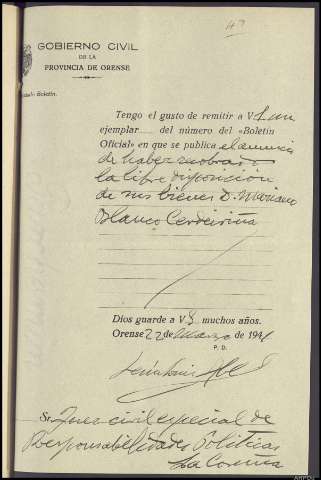 47
GOBIERNO CIVIL
DE LA
PROVINCIA DE ORENSE
Boletín.
Tengo el gusto de remitir a V.S. un
ejemplar del número del «Boletín
Oficial» en que se publica el anuncio
de haber recobrado
la libre disposición
de sus bienes D. Mariano
Blanco Cerdeiriña
Dios guarde a V.S. muchos años.
Orense 22 de Marzo de 1941
P. D.
Sr. Juez civil especial de
Responsabilidades Políticas
La Coruña